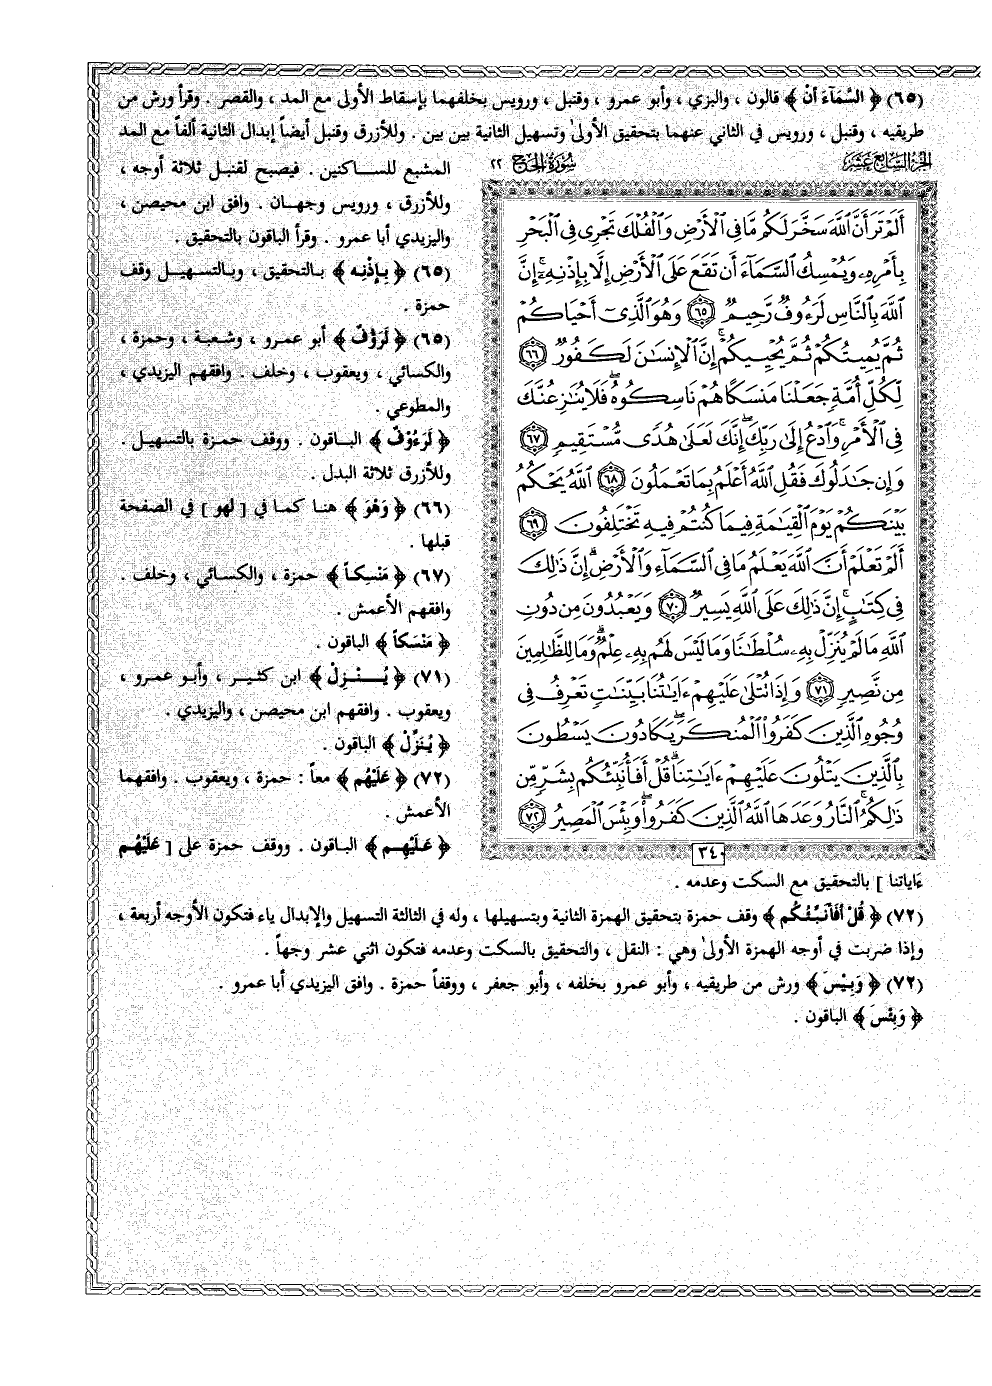 (٦٥) ﴿ السَّمَآءَ أَنْ ﴾ قالون ، والبزي ، وأبو عمرو ، وقنبل ، ورويس بخلفهما بإسقاط الأولى مع المد ، والقصر . وقرأ ورش من
طريقيه ، وقنبل ، ورويس في الثاني عنهما بتحقيق الأولىٰ وتسهيل الثانية بين بين . وللأزرق وقنبل أيضاً إبدال الثانية ألفاً مع المد
المشبع للساكنين . فيصبح لقنبل ثلاثة أوجه ،
وللأزرق ، ورويس وجهان . وافق ابن محيصن ،
واليزيدي أبا عمرو . وقرأ الباقون بالتحقيق .
(٦٥) ﴿ بِإِذْنِه ﴾ بالتحقيق ، وبالتسهيل وقف
حمزة .
(٦٥) ﴿ لَرَؤُفٌ ﴾ أبو عمرو ، وشعبة ، وحمزة ،
والكسائي ، ويعقوب ، وخلف . وافقهم اليزيدي ،
والمطوعي .
﴿ لَرَءُوْفٌ ﴾ الباقون . ووقف حمزة بالتسهيل .
وللأزرق ثلاثة البدل .
(٦٦) ﴿ وَهْوَ ﴾ هنا كما في [ لهو ] في الصفحة
قبلها .
(٦٧) ﴿ مَنْسِكاً ﴾ حمزة ، والكسائي ، وخلف .
وافقهم الأعمش .
﴿ مَنْسَكاً ﴾ الباقون .
(٧١) ﴿ يُنْزِلْ ﴾ ابن كثير ، وأبو عمرو ،
ويعقوب . وافقهم ابن محيصن ، واليزيدي .
﴿ يُنَزِّلْ ﴾ الباقون .
(٧٢) ﴿ عَلَيْهُم ﴾ معاً : حمزة ، ويعقوب . وافقهما
الأعمش .
﴿ عَلَيْهِم ﴾ الباقون . ووقف حمزة على [ عَلَيْهُم
الجزء السابع عشر
سورة الحج ٢٢
أَلَمْ تَرَ أَنَّ ٱللَّهَ سَخَّرَ لَكُم مَّا فِى ٱلْأَرْضِ وَٱلْفُلْكَ تَجْرِى فِى ٱلْبَحْرِ
بِأَمْرِهِۦ وَيُمْسِكُ ٱلسَّمَآءَ أَن تَقَعَ عَلَى ٱلْأَرْضِ إِلَّا بِإِذْنِهِۦٓ إِنَّ
ٱللَّهَ بِٱلنَّاسِ لَرَءُوفٌ رَّحِيمٌ ٦٥ وَهُوَ ٱلَّذِىٓ أَحْيَاكُمْ
ثُمَّ يُمِيتُكُمْ ثُمَّ يُحْيِيكُمْ إِنَّ ٱلْإِنسَٰنَ لَكَفُورٌ ٦٦
لِّكُلِّ أُمَّةٍ جَعَلْنَا مَنسَكًا هُمْ نَاسِكُوهُ فَلَا يُنَٰزِعُنَّكَ
فِى ٱلْأَمْرِ وَٱدْعُ إِلَىٰ رَبِّكَ إِنَّكَ لَعَلَىٰ هُدًى مُّسْتَقِيمٍ ٦٧
وَإِن جَٰدَلُوكَ فَقُلِ ٱللَّهُ أَعْلَمُ بِمَا تَعْمَلُونَ ٦٨ ٱللَّهُ يَحْكُمُ
بَيْنَكُمْ يَوْمَ ٱلْقِيَٰمَةِ فِيمَا كُنتُمْ فِيهِ تَخْتَلِفُونَ ٦٩
أَلَمْ تَعْلَمْ أَنَّ ٱللَّهَ يَعْلَمُ مَا فِى ٱلسَّمَآءِ وَٱلْأَرْضِ إِنَّ ذَٰلِكَ
فِى كِتَٰبٍ إِنَّ ذَٰلِكَ عَلَى ٱللَّهِ يَسِيرٌ ٧٠ وَيَعْبُدُونَ مِن دُونِ
ٱللَّهِ مَا لَمْ يُنَزِّلْ بِهِۦ سُلْطَٰنًا وَمَا لَيْسَ لَهُم بِهِۦ عِلْمٌ وَمَا لِلظَّٰلِمِينَ
مِن نَّصِيرٍ ٧١ وَإِذَا تُتْلَىٰ عَلَيْهِمْ ءَايَٰتُنَا بَيِّنَٰتٍ تَعْرِفُ فِى
وُجُوهِ ٱلَّذِينَ كَفَرُوا۟ ٱلْمُنكَرَ يَكَادُونَ يَسْطُونَ
بِٱلَّذِينَ يَتْلُونَ عَلَيْهِمْ ءَايَٰتِنَا قُلْ أَفَأُنَبِّئُكُم بِشَرٍّ مِّن
ذَٰلِكُمُ ٱلنَّارُ وَعَدَهَا ٱللَّهُ ٱلَّذِينَ كَفَرُوا۟ وَبِئْسَ ٱلْمَصِيرُ ٧٢
٣٤٠
ءَاياتنا ] بالتحقيق مع السكت وعدمه .
(٧٢) ﴿ قُلْ أَفَأُنَبِّئُكُم ﴾ وقف حمزة بتحقيق الهمزة الثانية وبتسهيلها ، وله في الثالثة التسهيل والإبدال ياء فتكون الأوجه أربعة ،
وإذا ضربت في أوجه الهمزة الأولىٰ وهي : النقل ، والتحقيق بالسكت وعدمه فتكون اثني عشر وجهاً .
(٧٢) ﴿ وَبِيْسَ ﴾ ورش من طريقيه ، وأبو عمرو بخلفه ، وأبو جعفر ، ووقفاً حمزة . وافق اليزيدي أبا عمرو .
﴿ وَبِئْسَ ﴾ الباقون .